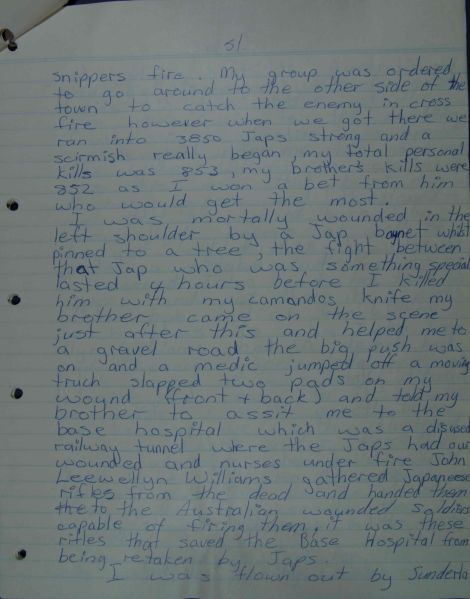 51
snippers fire. My group was ordered
to go around to the other side of the
town to catch the enemy in cross
fire however when we got there we
ran into 3850 Japs strong and a
scirmish really began, my total personal
kills was 853, my brother's kills were
852 as I won a bet from him
who would get the most.
I was mortally wounded in the
left shoulder by a Jap baynet whilst
pinned to a tree, the fight between
that Jap who was something special
lasted 4 hours before I killed
him with my camandos knife my
brother came on the scene
just after this and helped me to
a gravel road the big push was
on and a medic jumped off a moving
truch slapped two pads on my
wound (front + back) and told my
brother to assit me to the
base hospital which was a disused
railway tunnel were the Japs had our
wounded and nurses under fire John
Leewellyn Williams gathered Japaneese
rifles from the dead and handed them
to the Australian wounded soldiers
capable of firing them, it was these
rifles that saved the Base Hospital from
being retaken by Japs.
I was flown out by Sunderla